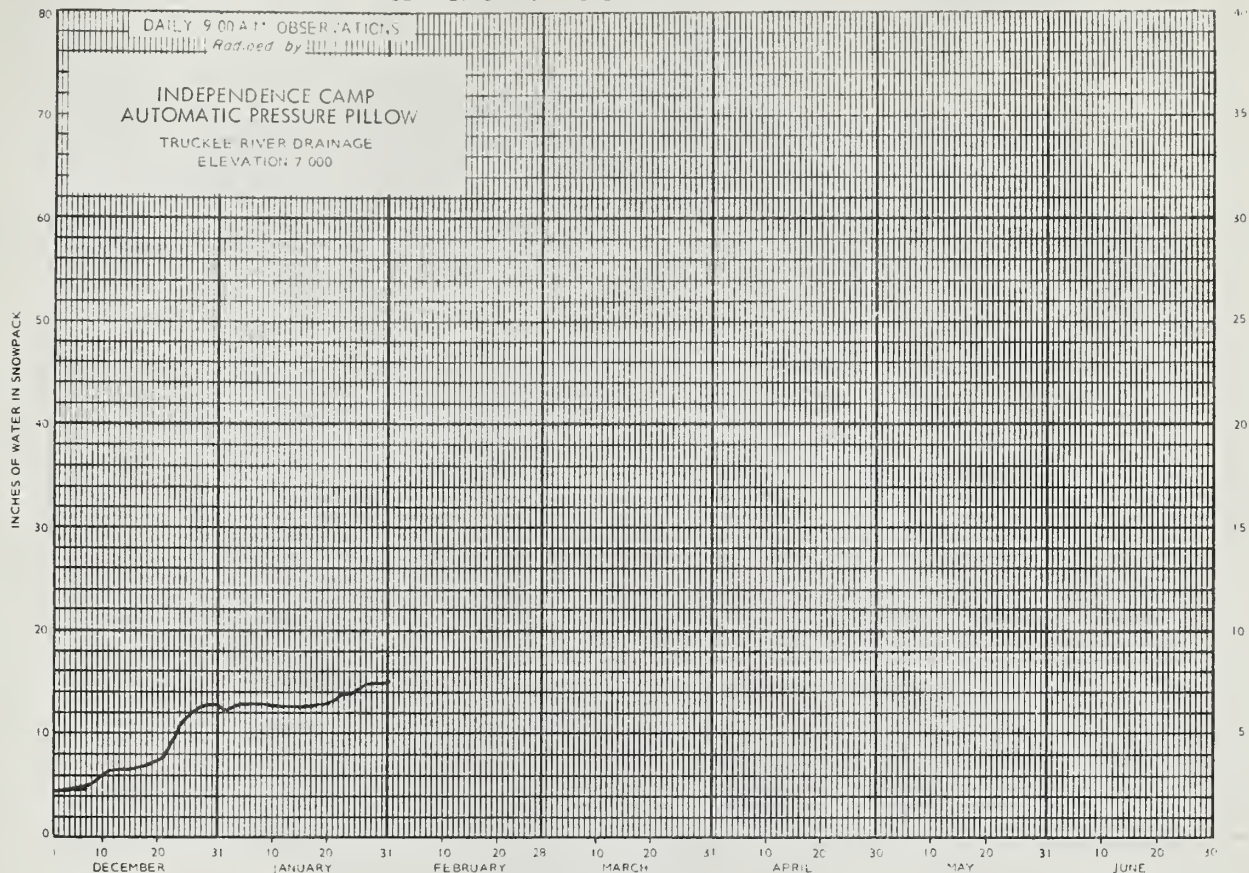 DAILY 9:00 A.M. OBSERVATIONS
Radioed by
INDEPENDENCE CAMP
AUTOMATIC PRESSURE PILLOW
TRUCKEE RIVER DRAINAGE
ELEVATION 7 000
INCHES OF WATER IN SNOWPACK
80
70
60
50
40
30
20
10
0
40
35
30
25
20
15
10
5
1 10 20 31 10 20 31 10 20 28 10 20 31 10 20 30 10 20 31 10 20 30
DECEMBER JANUARY FEBRUARY MARCH APRIL MAY JUNE